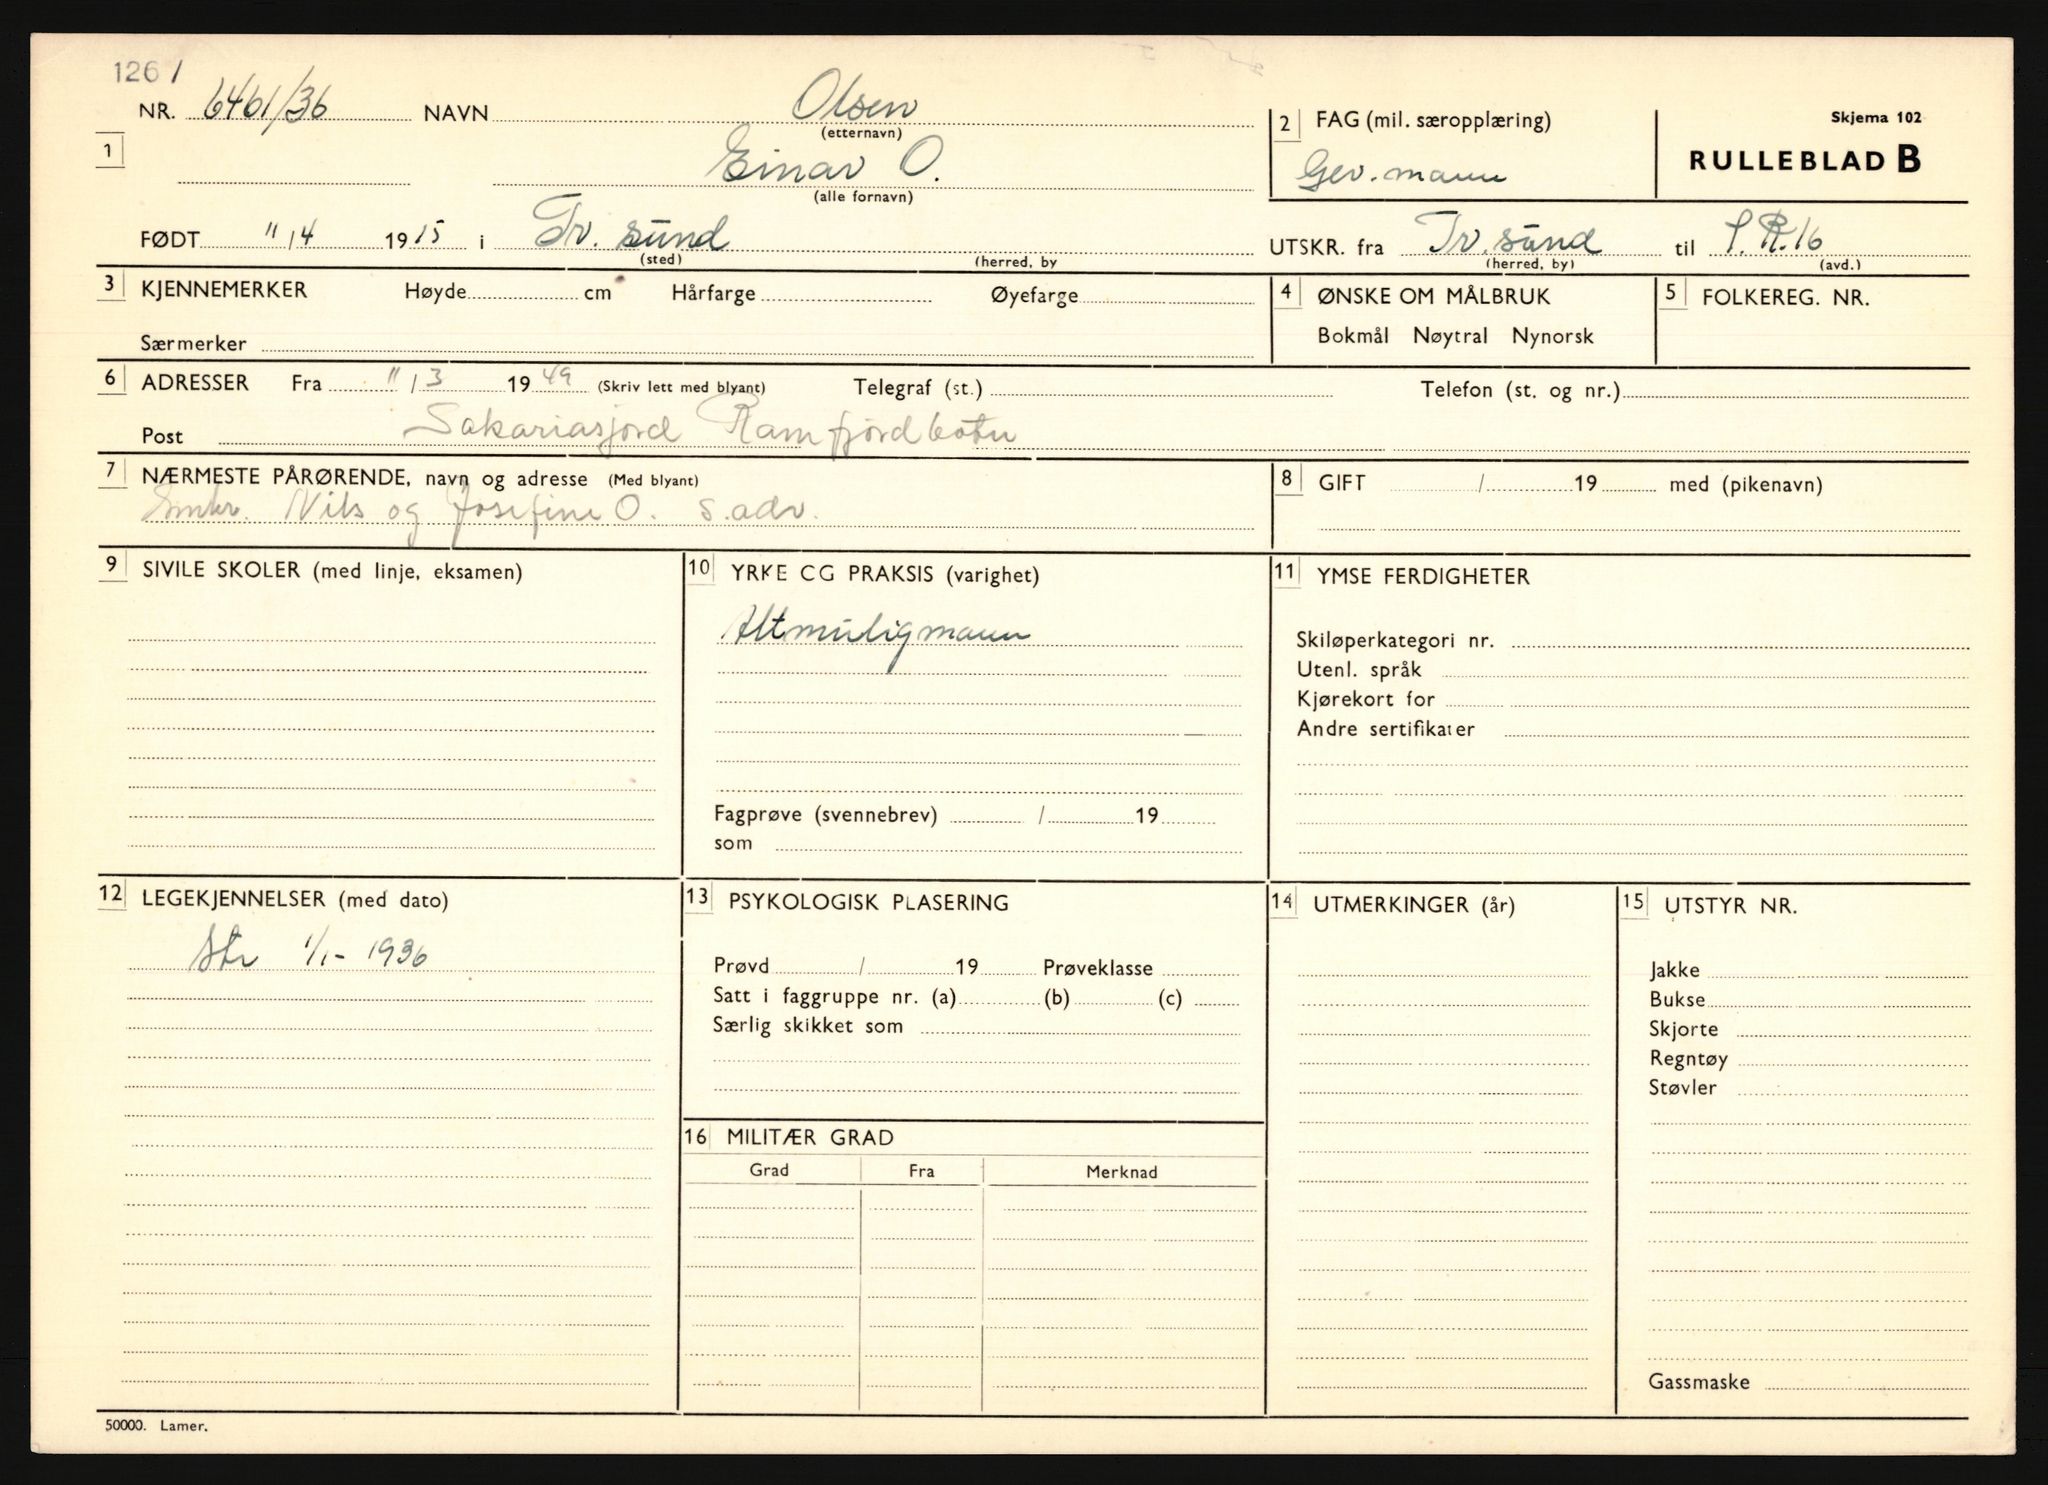 1261
NR. 6461/36 NAVN Olsen
(etternavn)
2 FAG (mil. særopplæring)
Skjema 102
RULLEBLAD B
1
Einar O.
(alle fornavn)
Gev. mann
FØDT 11/4 1915 i Tr. sund
(sted) (herred, by
UTSKR. fra Tr. sund til I.R.16
(herred, by) (avd.)
3 KJENNEMERKER Høyde cm Hårfarge Øyefarge
Særmerker
4 ØNSKE OM MÅLBRUK
Bokmål Nøytral Nynorsk
5 FOLKEREG. NR.
6 ADRESSER Fra 11/3 1949 (Skriv lett med blyant) Telegraf (st.) Telefon (st. og nr.)
Post Sakariasjord Ramfjordbotn
7 NÆRMESTE PÅRØRENDE, navn og adresse (Med blyant)
Nils og Josefine O. s. adr.
8 GIFT / 19 med (pikenavn)
9 SIVILE SKOLER (med linje, eksamen)
10 YRKE OG PRAKSIS (varighet)
Altmuligmann
Fagprøve (svennebrev) / 19
som
11 YMSE FERDIGHETER
Skiløperkategori nr.
Utenl. språk
Kjørekort for
Andre sertifikater
12 LEGEKJENNELSER (med dato)
Str 1/1- 1936
13 PSYKOLOGISK PLASERING
Prøvd / 19 Prøveklasse
Satt i faggruppe nr. (a) (b) (c)
Særlig skikket som
14 UTMERKINGER (år)
15 UTSTYR NR.
Jakke
Bukse
Skjorte
Regntøy
Støvler
Gassmaske
16 MILITÆR GRAD
Grad Fra Merknad
50000. Lamer.